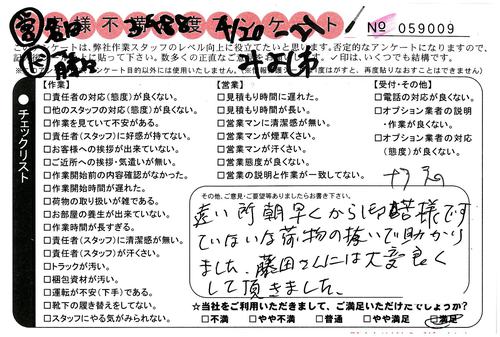 お客様不満度アンケート
№ 059009
このアンケートは、弊社作業スタッフのレベル向上に役立てたいと思います。否定的なアンケートになりますので、
✓印は、いくつでも結構です。
チェックリスト
【作業】
□責任者の対応(態度)が良くない。
□他のスタッフの対応(態度)が良くない。
□作業を見ていて不安がある。
□責任者(スタッフ)に好感が持てない。
□お客様への挨拶が出来ていない。
□ご近所への挨拶・気遣いが無い。
□作業開始前の内容確認がなかった。
□作業開始時間が遅れた。
□荷物の取り扱いが雑である。
□お部屋の養生が出来ていない。
□作業時間が長すぎる。
□責任者(スタッフ)に清潔感が無い。
□責任者(スタッフ)が汗くさい。
□トラックが汚い。
□梱包資材が汚い。
□運転が不安(下手)である。
□靴下の履き替えをしてない。
□スタッフにやる気がみられない。
【営業】
□見積もり時間に遅れた。
□見積もり時間が長い。
□営業マンに清潔感が無い。
□営業マンが煙草くさい。
□営業マンが汗くさい。
□営業態度が良くない。
□営業の説明と作業が一致してない。
【受付・その他】
□電話の対応が良くない。
□オプション業者の説明
・作業が良くない。
□オプション業者の対応
(態度)が良くない。
その他、ご意見・ご要望等ありましたらお書き下さい。
遠い所朝早くから皆様です
ていねいな荷物の扱いで助かり
ました。藤田さんには大変良く
して頂きました。
☆当社をご利用いただきまして、ご満足いただけたでしょうか?
□不満 □やや不満 □普通 □やや満足 □満足